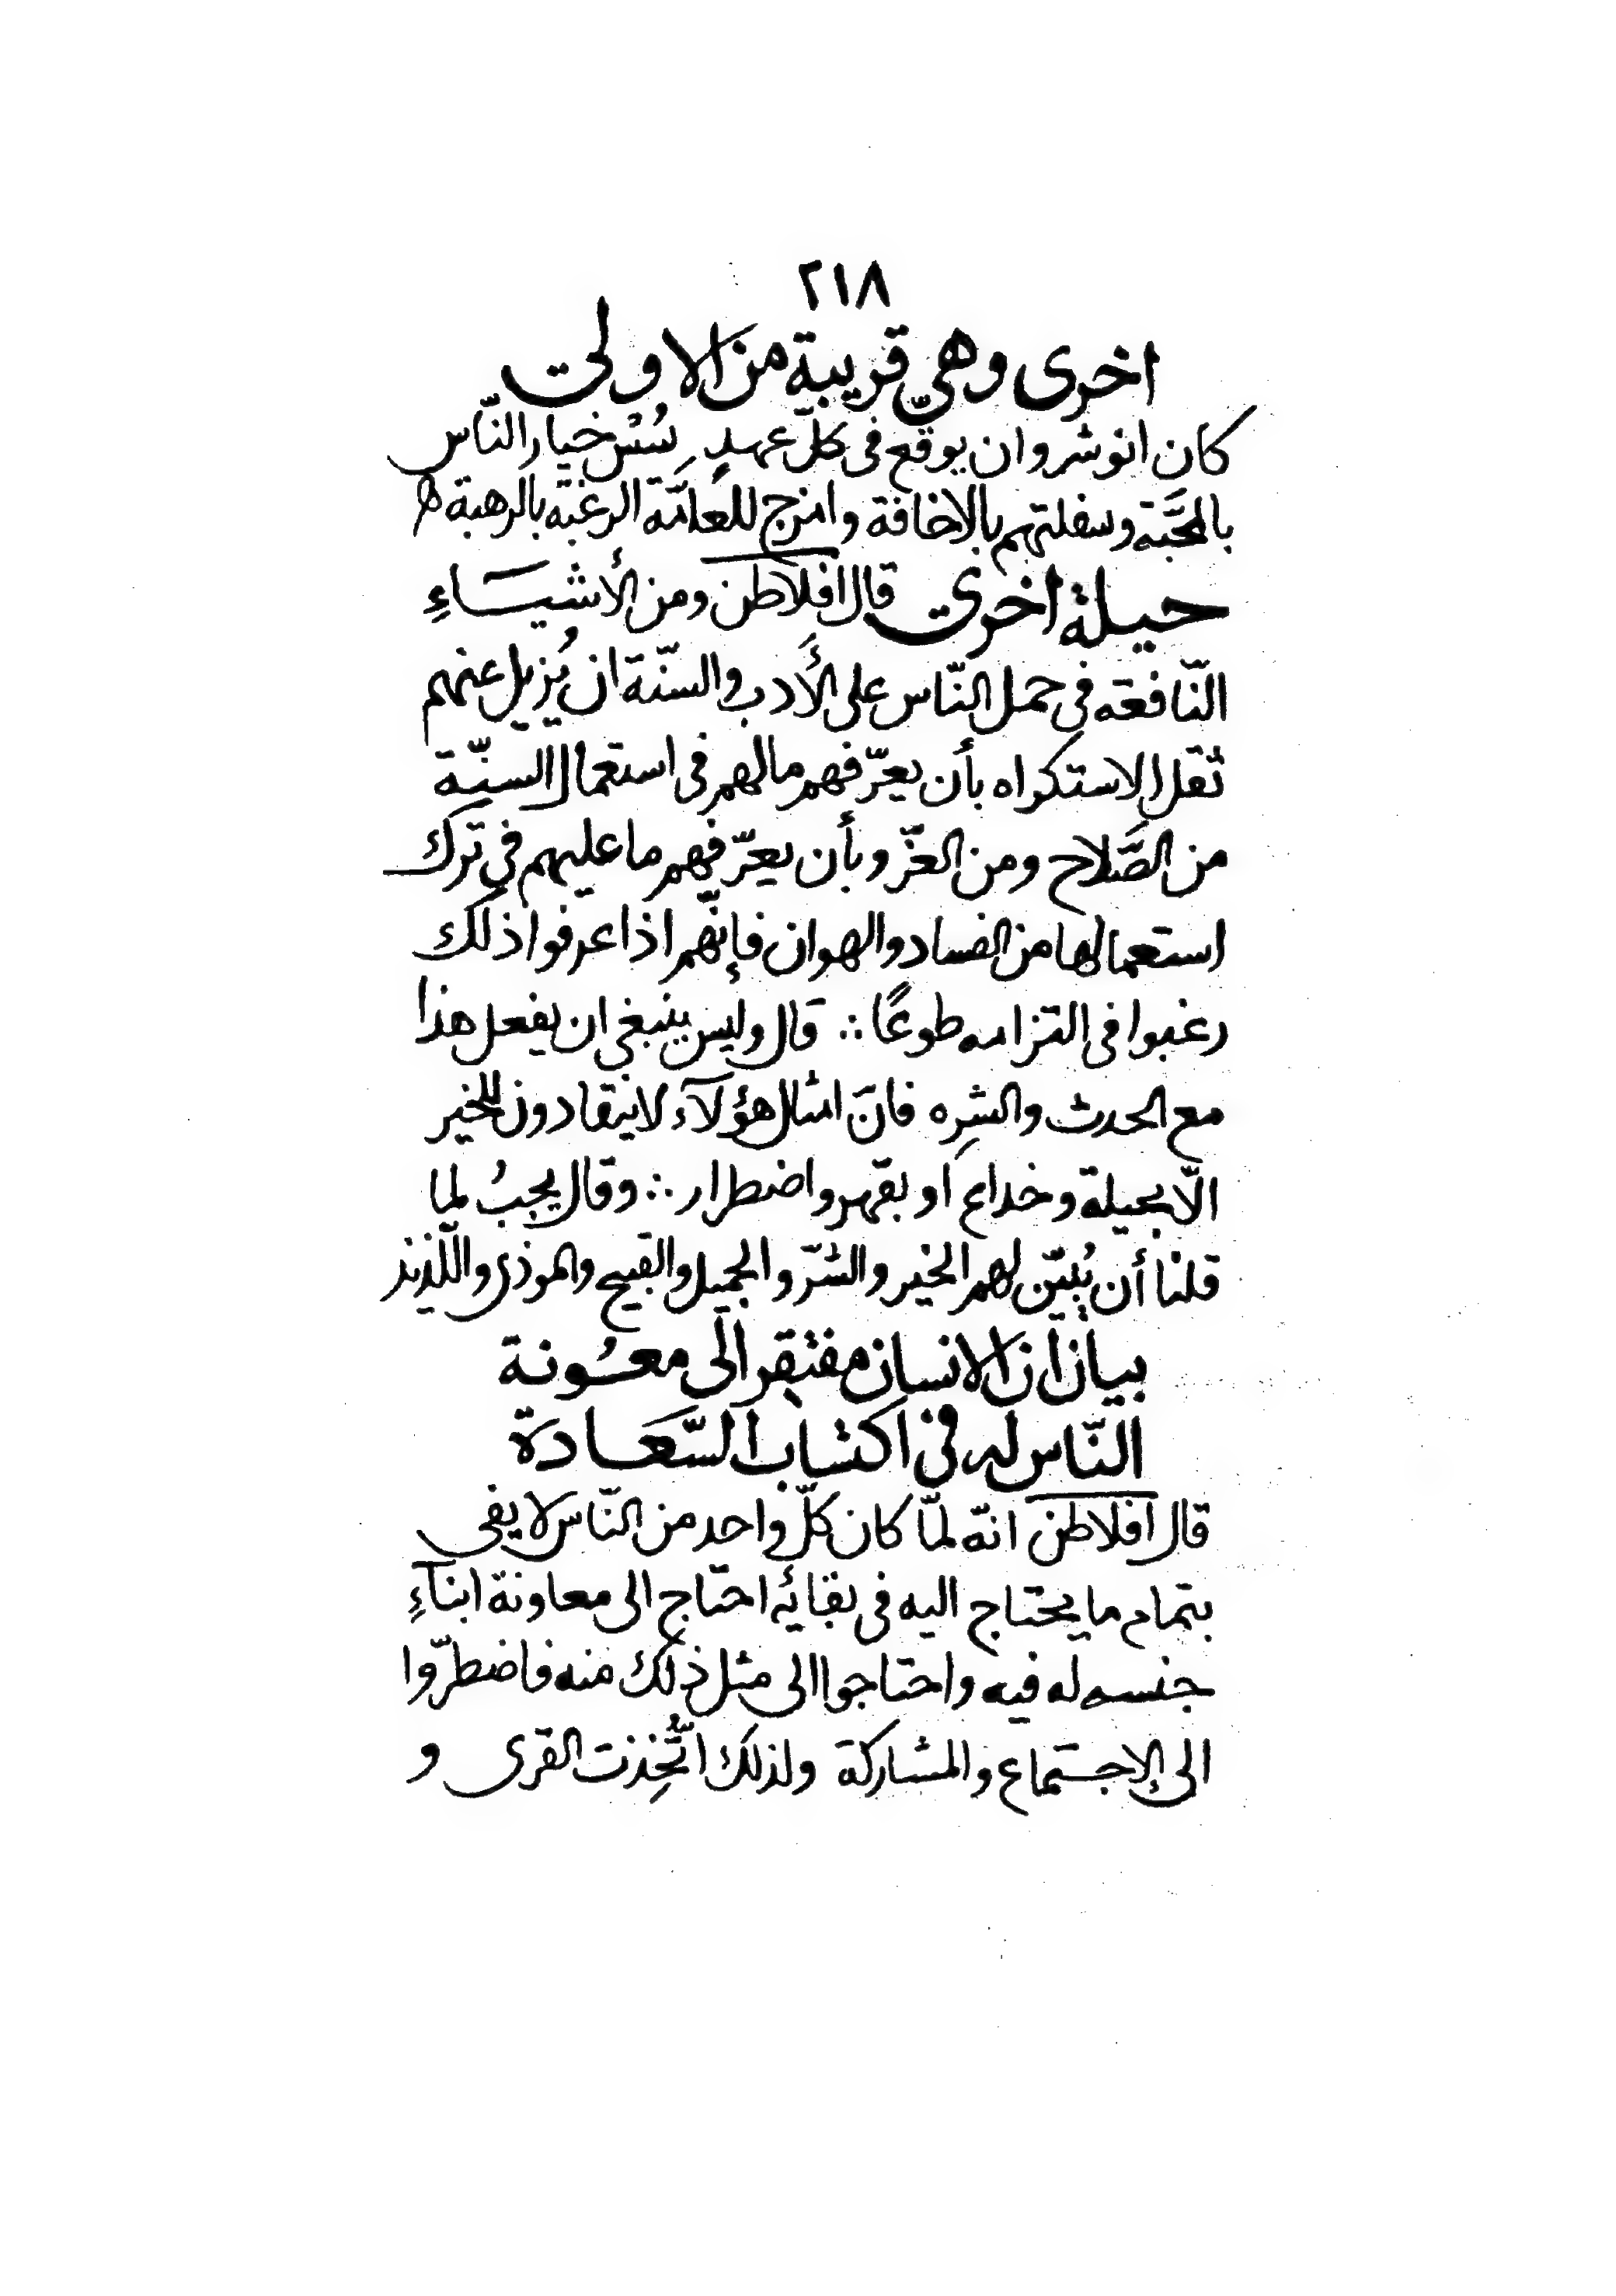 ٢١٨
اخرى وهى قريبة من الاولى
كان انوشروان يوقّع فى كلّ عهدٍ سُسْ خيار النّاس
بالمحَبّة وسفلتهم بالاخافة وامزج للعامَّة الرغبة بالرهبة
حيلة اخرى قال افلاطن ومن الأشيَاءِ
النّافعة فى حمل النّاس على الأَدب والسنّة ان يُزيل عنهم
ثقل الاستكراه بأن يعرّفهم مالهم فى استعمال السنّة
من الصَّلاح ومن العزّ وبأن يعرّفهم ما عليهم فى ترك
استعمالها من الفساد والهوان فإنّهم اذا عرفوا ذلك
رغبوا فى التزامه طوعًا ∴ قال وليس ينبغى ان يفعل هذا
مع الحدث والشرِه فانّ امثال هؤلآء لا ينقادون للخير
الّا بحيلة وخداع او بقهر واضطرار ∴ وقال يجبُ لما
قلنا أن يُبيّن لهم الخير والشرّ والجميل والقبيح والموذى واللّذيذ
بيان ان الانسان مفتقر الى معُونة
النّاس له فى اكتساب السّعَادة
قال افلاطن انّه لمّا كان كلّ واحد من النّاس لا يفى
بتمام ما يحتاج اليه فى بقائه احتاج الى معاونة ابنآءِ
جنسه له فيه واحتاجوا الى مثل ذلك منه فاضطرّوا
الى الإجتماع والمشاركة ولذلك اتُّخِذت القرى و